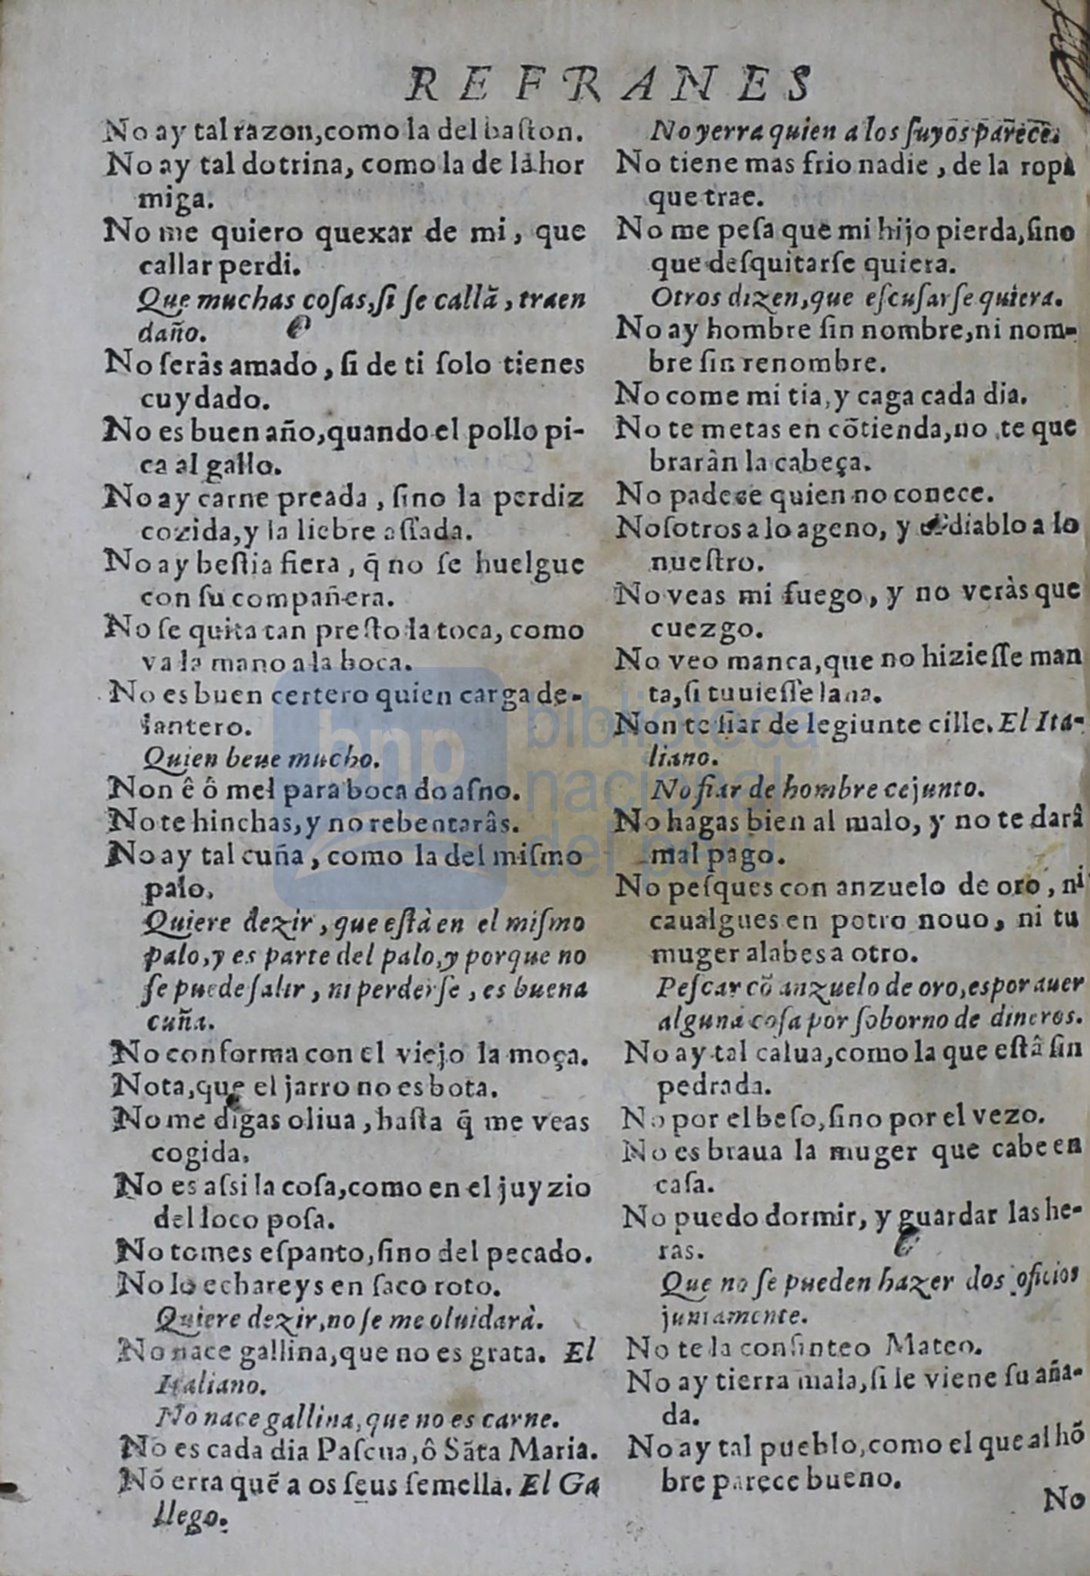 REFRANES
No ay tal razon,como la del baſton.
No ay tal dotrina, como la de la hor
miga.
No me quiero quexar de mi, que
callar perdi.
Que muchas coſas,ſi ſe callã, traen
daño.
No ſeràs amado, ſi de ti ſolo tienes
cuydado.
No es buen año,quando el pollo pi-
ca al gallo.
No ay carne preada, ſino la perdiz
cozida,y la liebre aſſada.
No ay beſtia fiera, q̃ no ſe huelgue
con ſu compañera.
No ſe quita tan preſto la toca, como
va la mano a la boca.
No es buen certero quien carga de-
lantero.
Quien beue mucho.
Non ê ô mel para boca do aſno.
No te hinchas,y no rebentaràs.
No ay tal cuña, como la del miſmo
palo.
Quiere dezir, que eſtà en el miſmo
palo,y es parte del palo,y porque no
ſe puede ſalir, ni perderſe, es buena
cuña.
No conforma con el viejo la moça.
Nota,que el jarro no es bota.
No me digas oliua, haſta q̃ me veas
cogida.
No es aſsi la coſa,como en el juyzio
del loco poſa.
No tomes eſpanto,ſino del pecado.
No lo echareys en ſaco roto.
Quiere dezir,no ſe me oluidarà.
No nace gallina,que no es grata. El
Italiano.
No nace gallina,que no es carne.
No es cada dia Paſcua,ô Sãta Maria.
Nõ erra quẽ a os ſeus ſemella. El Ga
llego.
No yerra quien a los ſuyos parece.
No tiene mas frio nadie, de la ropa
que trae.
No me peſa que mi hijo pierda,ſino
que deſquitarſe quiera.
Otros dizen,que eſcuſarſe quiera.
No ay hombre ſin nombre,ni nom-
bre ſin renombre.
No come mi tia,y caga cada dia.
No te metas en cõtienda,no te que
braràn la cabeça.
No padece quien no conece.
Noſotros a lo ageno, y el diablo a lo
nueſtro.
No veas mi fuego, y no veràs que
cuezgo.
No veo manca,que no hizieſſe man
ta,ſi tuuieſſe lana.
Non te fiar de legiunte cille. El Ita-
liano.
No fiar de hombre cejunto.
No hagas bien al malo, y no te darâ
mal pago.
No peſques con anzuelo de oro, ni
caualgues en potro nouo, ni tu
muger alabes a otro.
Peſcar cõ anzuelo de oro,es por auer
alguna coſa por ſoborno de dineros.
No ay tal calua,como la que eſtâ ſin
pedrada.
No por el beſo,ſino por el vezo.
No es braua la muger que cabe en
caſa.
No puedo dormir, y guardar las he-
ras.
Que no ſe pueden hazer dos oficios
juntamente.
No te la conſinteo Mateo.
No ay tierra mala,ſi le viene ſu aña-
da.
No ay tal pueblo,como el que al hõ
bre parece bueno.
No
bnp biblioteca
nacional
del perú